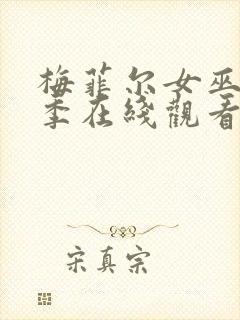 梅菲尔女巫
季在綫觀看
宋真宗